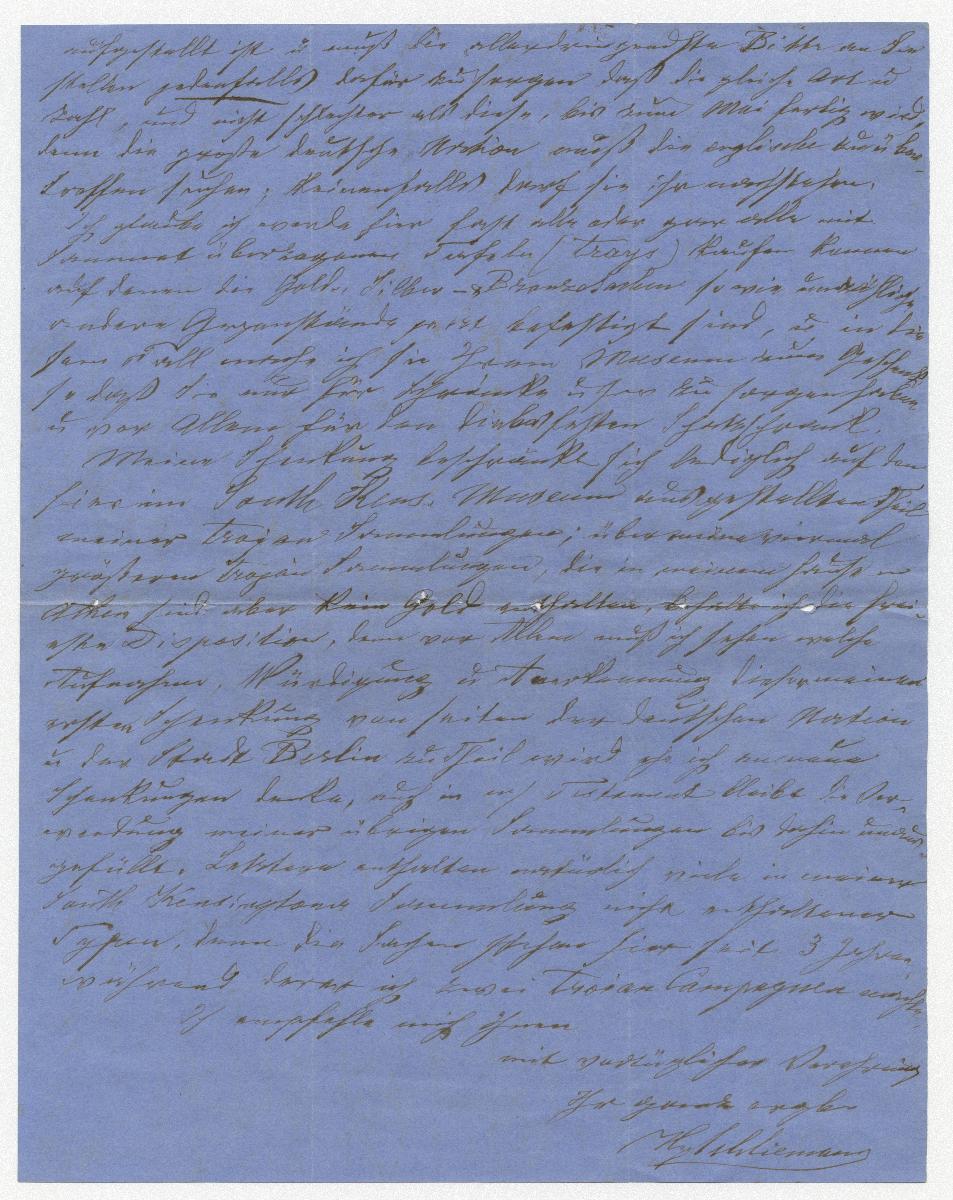 aufgestellt ist u muß die allerdringendste Bitte an Sie
stellen jedenfalls dafür zu sorgen daß die gleiche Art u
Zahl, und nicht schlechter als diese, bis zum Mai fertig wird,
denn die große deutsche Nation muß die englische zu über-
treffen suchen; keinenfalls darf sie ihr nachstehen.
Ich glaube ich werde hier fast alle oder gar alle mit
Sammet überzogenen Tafeln (Trays) kaufen können
auf denen die Gold-, Silber- & Bronzesachen sowie unzählige
andere Gegenstände jetzt befestigt sind, u in die
sem Fall mache ich sie Ihrem Museum zum Geschenk
so daß Sie nur für Schränke u zu sorgen haben
u vor Allem für den diebesfesten Schatzschrank.
Meine Schenkung beschränkt sich lediglich auf den
hier im South Kens. Museum ausgestellten Theil
meiner trojan Sammlungen; über meine viermal
größeren trojan Sammlungen, die in meinem Hause in
Athen sind aber kein Gold enthalten, behalte ich die frei-
este Disposition, denn vor Allem muß ich sehen welche
Aufnahme, Würdigung u Anerkennung dieser meiner
ersten Schenkung von seiten der deutschen Nation
u der Stadt Berlin zu Theil wird ehe ich an neue
Schenkungen denke, auch in m/ Testament bleibt die Ver-
wendung meiner übrigen Sammlungen bis dahin unaus-
gefüllt. Letztere enthalten natürlich viele in meiner
South Kensington Sammlung nicht enthaltene
Typen, denn die Sachen stehen hier seit 3 Jahren
während derer ich zwei trojan Campagnen machte.
Ich empfehle mich Ihnen
mit vorzüglicher Verehrung
Ihr ganz ergb
Hy Schliemann